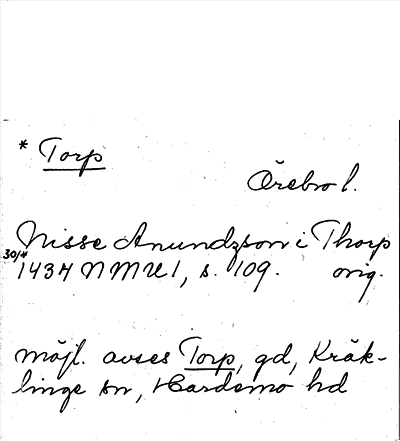 * Torp
Örebro l.
Nisse Anundzson i Thorp
30/4 1434 NMU 1, s. 109. orig.
möjl. avses Torp, gd, Kräk-
linge sn, Hardemo hd